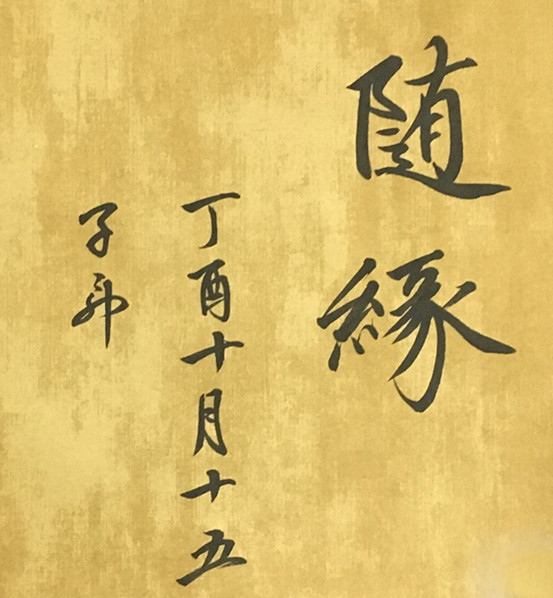 随緣
丁酉十月十五
子昴